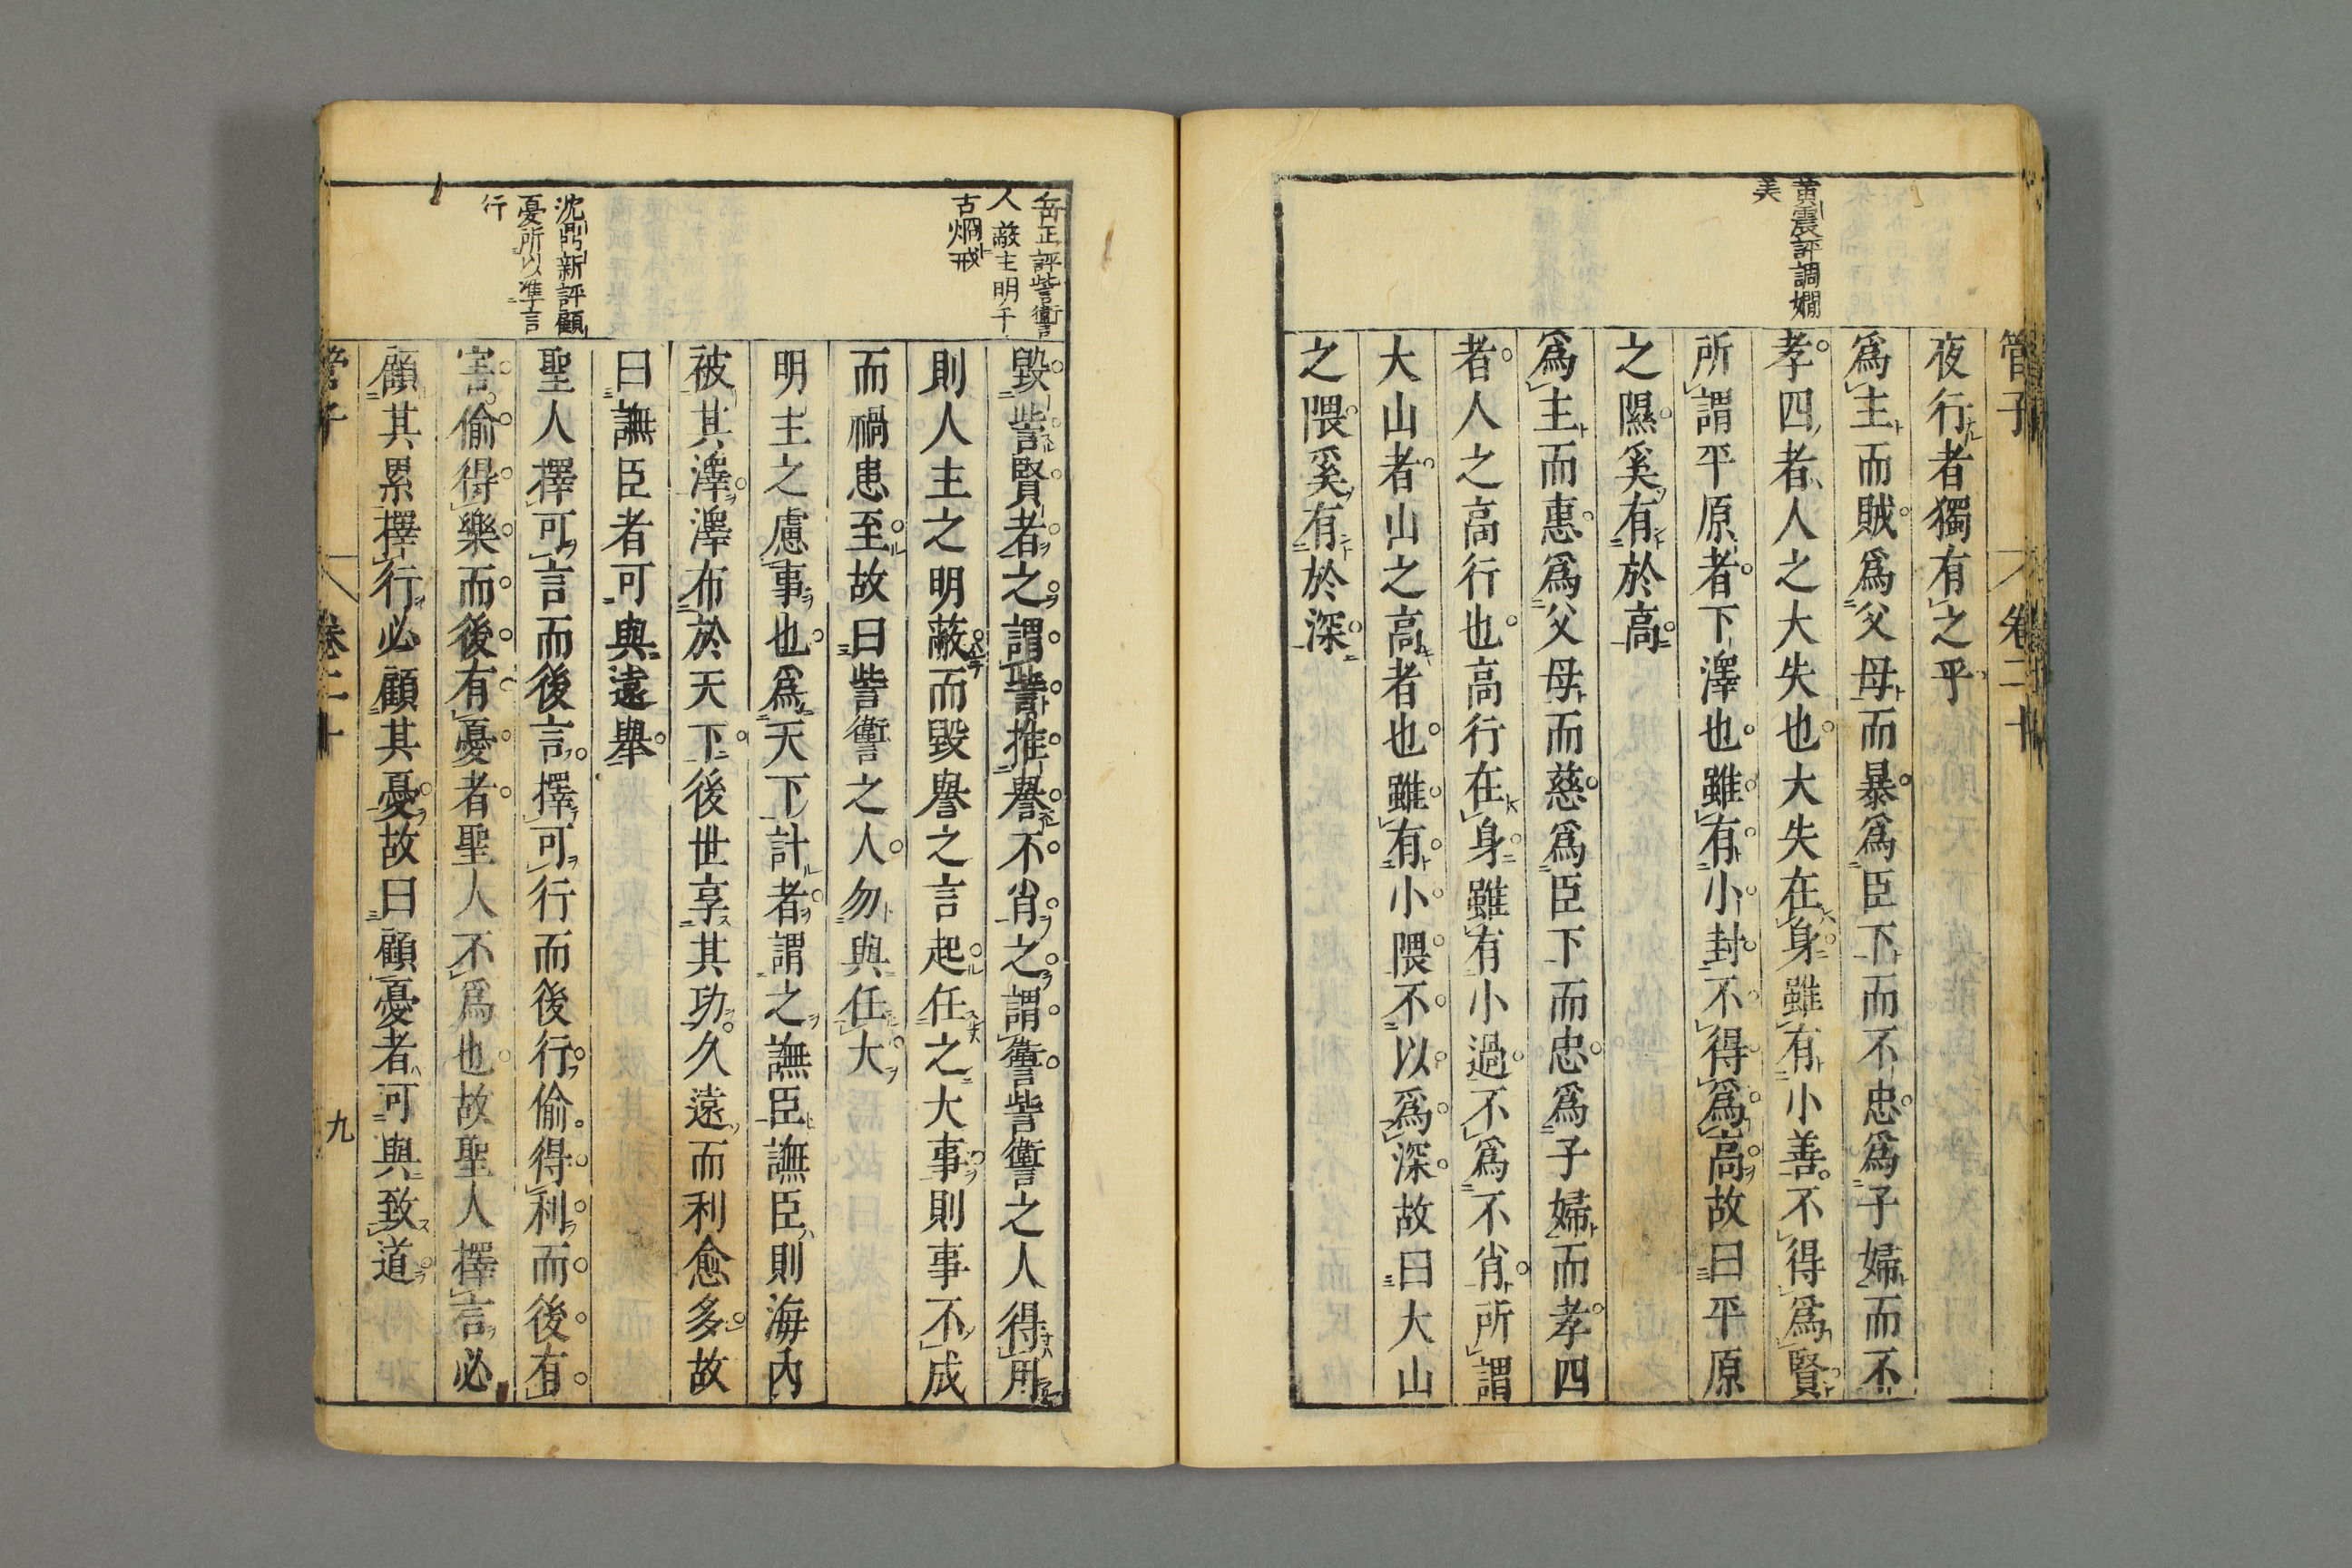 管子
卷二十
黄震評調嫺
美
夜行者獨有之乎
爲主而賊爲父母而暴爲臣下而不忠爲子婦而不
孝四者人之大失也大失在身雖有小善不得爲賢
所謂平原者下澤也雖有小封不得爲高故曰平原
之隰奚有於高
爲主而惠爲父母而慈爲臣下而忠爲子婦而孝四
者人之高行也高行在身雖有小過不爲不肖所謂
大山者山之高者也雖有小隈不以爲深故曰大山
之隈奚有於深
岳正評訾讆
人蔽主明千
古烱戒
毀訾賢者之謂訾推譽不肖之謂讆訾讆之人得用
則人主之明蔽而毀譽之言起任之大事則事不成
而禍患至故曰訾讆之人勿與任大
明主之慮事也爲天下計者謂之譕臣譕臣則海內
被其澤澤布於天下後世享其功久遠而利愈多故
曰譕臣者可與遠舉
沈鼎新評顧
憂所以準言
行
聖人擇可言而後言擇可行而後行偷得利而後有
害偷得樂而後有憂者聖人不爲也故聖人擇言必
顧其累擇行必顧其憂故曰顧憂者可與致道
管子
卷二十
九